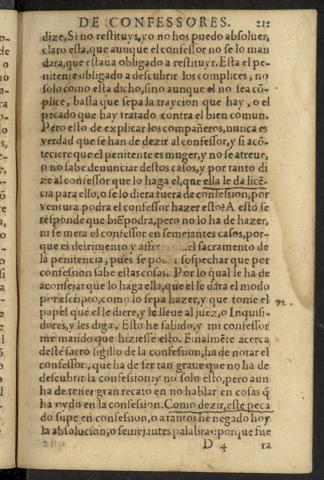 DE CONFESSORES. 212
dize, Si no restituys, yo no hos puedo absoluer,
claro esta, que aunque el confessor no se lo man
dara, que estaua obligado a restituyr. Esta el pe-
nitente obligado a descubrir los complices, no
solo como esta dicho, sino aunque el no sea cõ-
plice, basta que sepa la traycion que hay, o el
pecado que hay tratado contra el bien comun.
Pero esto de explicar los compañeros, nunca es
verdad que se han de dezir al confessor, y si acõ-
teciere que el penitente es muger, y no se atreue,
o no sabe denunciar destos casos, y por tanto di
ze al confessor que lo haga el, que ella le da licẽ-
cia para ello, o se lo diera fuera de confession, por
ventura podra el confessor hazer esto? A esto se
responde que biẽ podra, pero no lo ha de hazer,
ni se meta el confessor en semejantes casos, por-
que es detrimento y el sacramento de
la penitencia, pues se po sospechar que por
confession sabe estas cosas. Por lo qual le ha de
aconsejar que lo haga ella, que el le dara el modo
por escripto, como lo sepa hazer, y que tome el
papel que el le diere, y le lleue al juez, o Inquisi-
dores, y les diga, Esto he sabido, y mi confessor
me mando que hiziesse esto. Finalmẽte acerca
deste sacro sigillo de la confession, ha de notar el
confessor, que ha de ser tan graue que no ha de
descubrir la confession: y no solo esto, pero aun
ha de tener gran recato en no hablar en cosas q̃
ha oydo en la confession. Como dezir, este peca
do supe en confession, o a tantos he negado hoy
la absolucion, o semejantes palabras: porque fue
D 4 ra